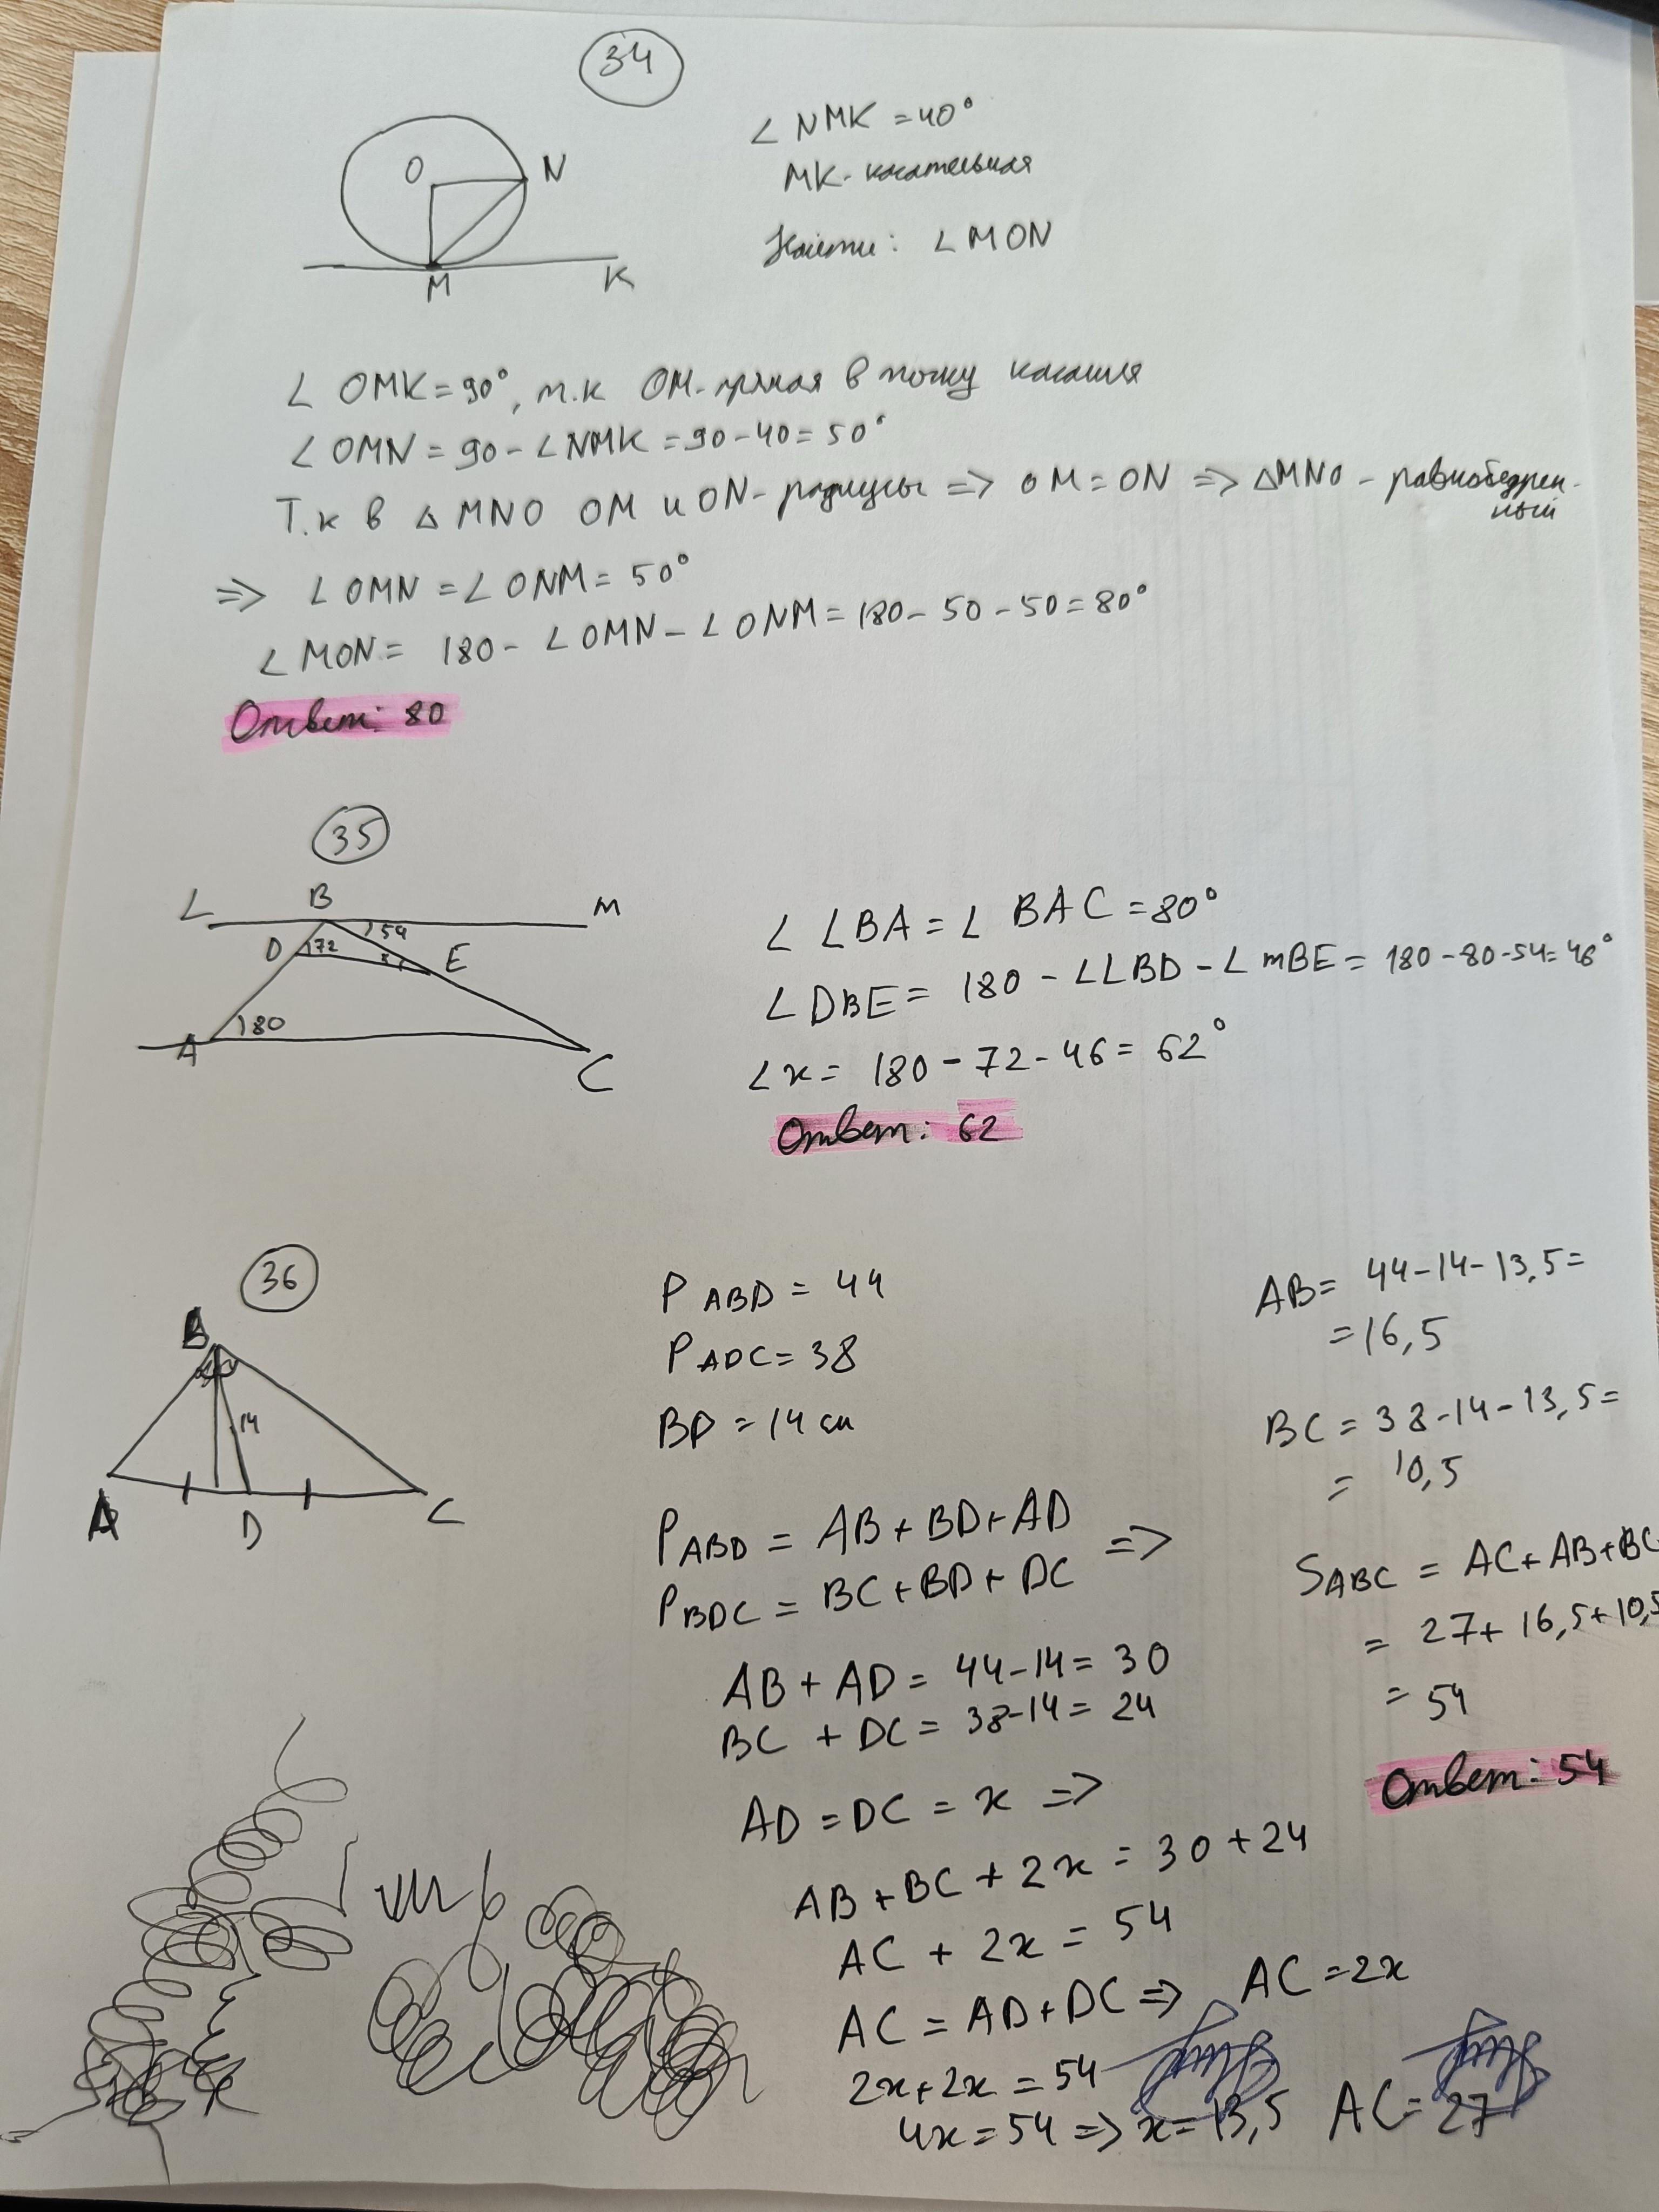 34
O
N
M
K
∠ NMK = 40°
MK - касательная
Найти: ∠ MON
∠ OMK = 90°, т.к OM - прямая в точку касания
∠ OMN = 90 - ∠ NMK = 90 - 40 = 50°
Т.к в △ MNO OM и ON - радиусы => OM = ON => △MNO - равнобедрен-
ный
=> ∠ OMN = ∠ ONM = 50°
∠ MON = 180 - ∠ OMN - ∠ ONM = 180 - 50 - 50 = 80°
Ответ: 80
35
L B M
54
D 72 E
80
A
C
∠ LBA = ∠ BAC = 80°
∠ DBE = 180 - ∠LBD - ∠ mBE = 180 - 80 - 54 = 46°
∠ x = 180 - 72 - 46 = 62°
Ответ: 62
36
B
14
A D C
P ABD = 44
P ADC = 38
BD = 14 см
P ABD = AB + BD + AD =>
P BDC = BC + BD + DC
AB + AD = 44 - 14 = 30
BC + DC = 38 - 14 = 24
AD = DC = x =>
AB + BC + 2x = 30 + 24
AC + 2x = 54
AC = AD + DC => AC = 2x
2x + 2x = 54
4x = 54 => x = 13,5 AC = 27
AB = 44 - 14 - 13,5 =
= 16,5
BC = 38 - 14 - 13,5 =
= 10,5
S ABC = AC + AB + BC
= 27 + 16,5 + 10,5
= 54
Ответ: 54